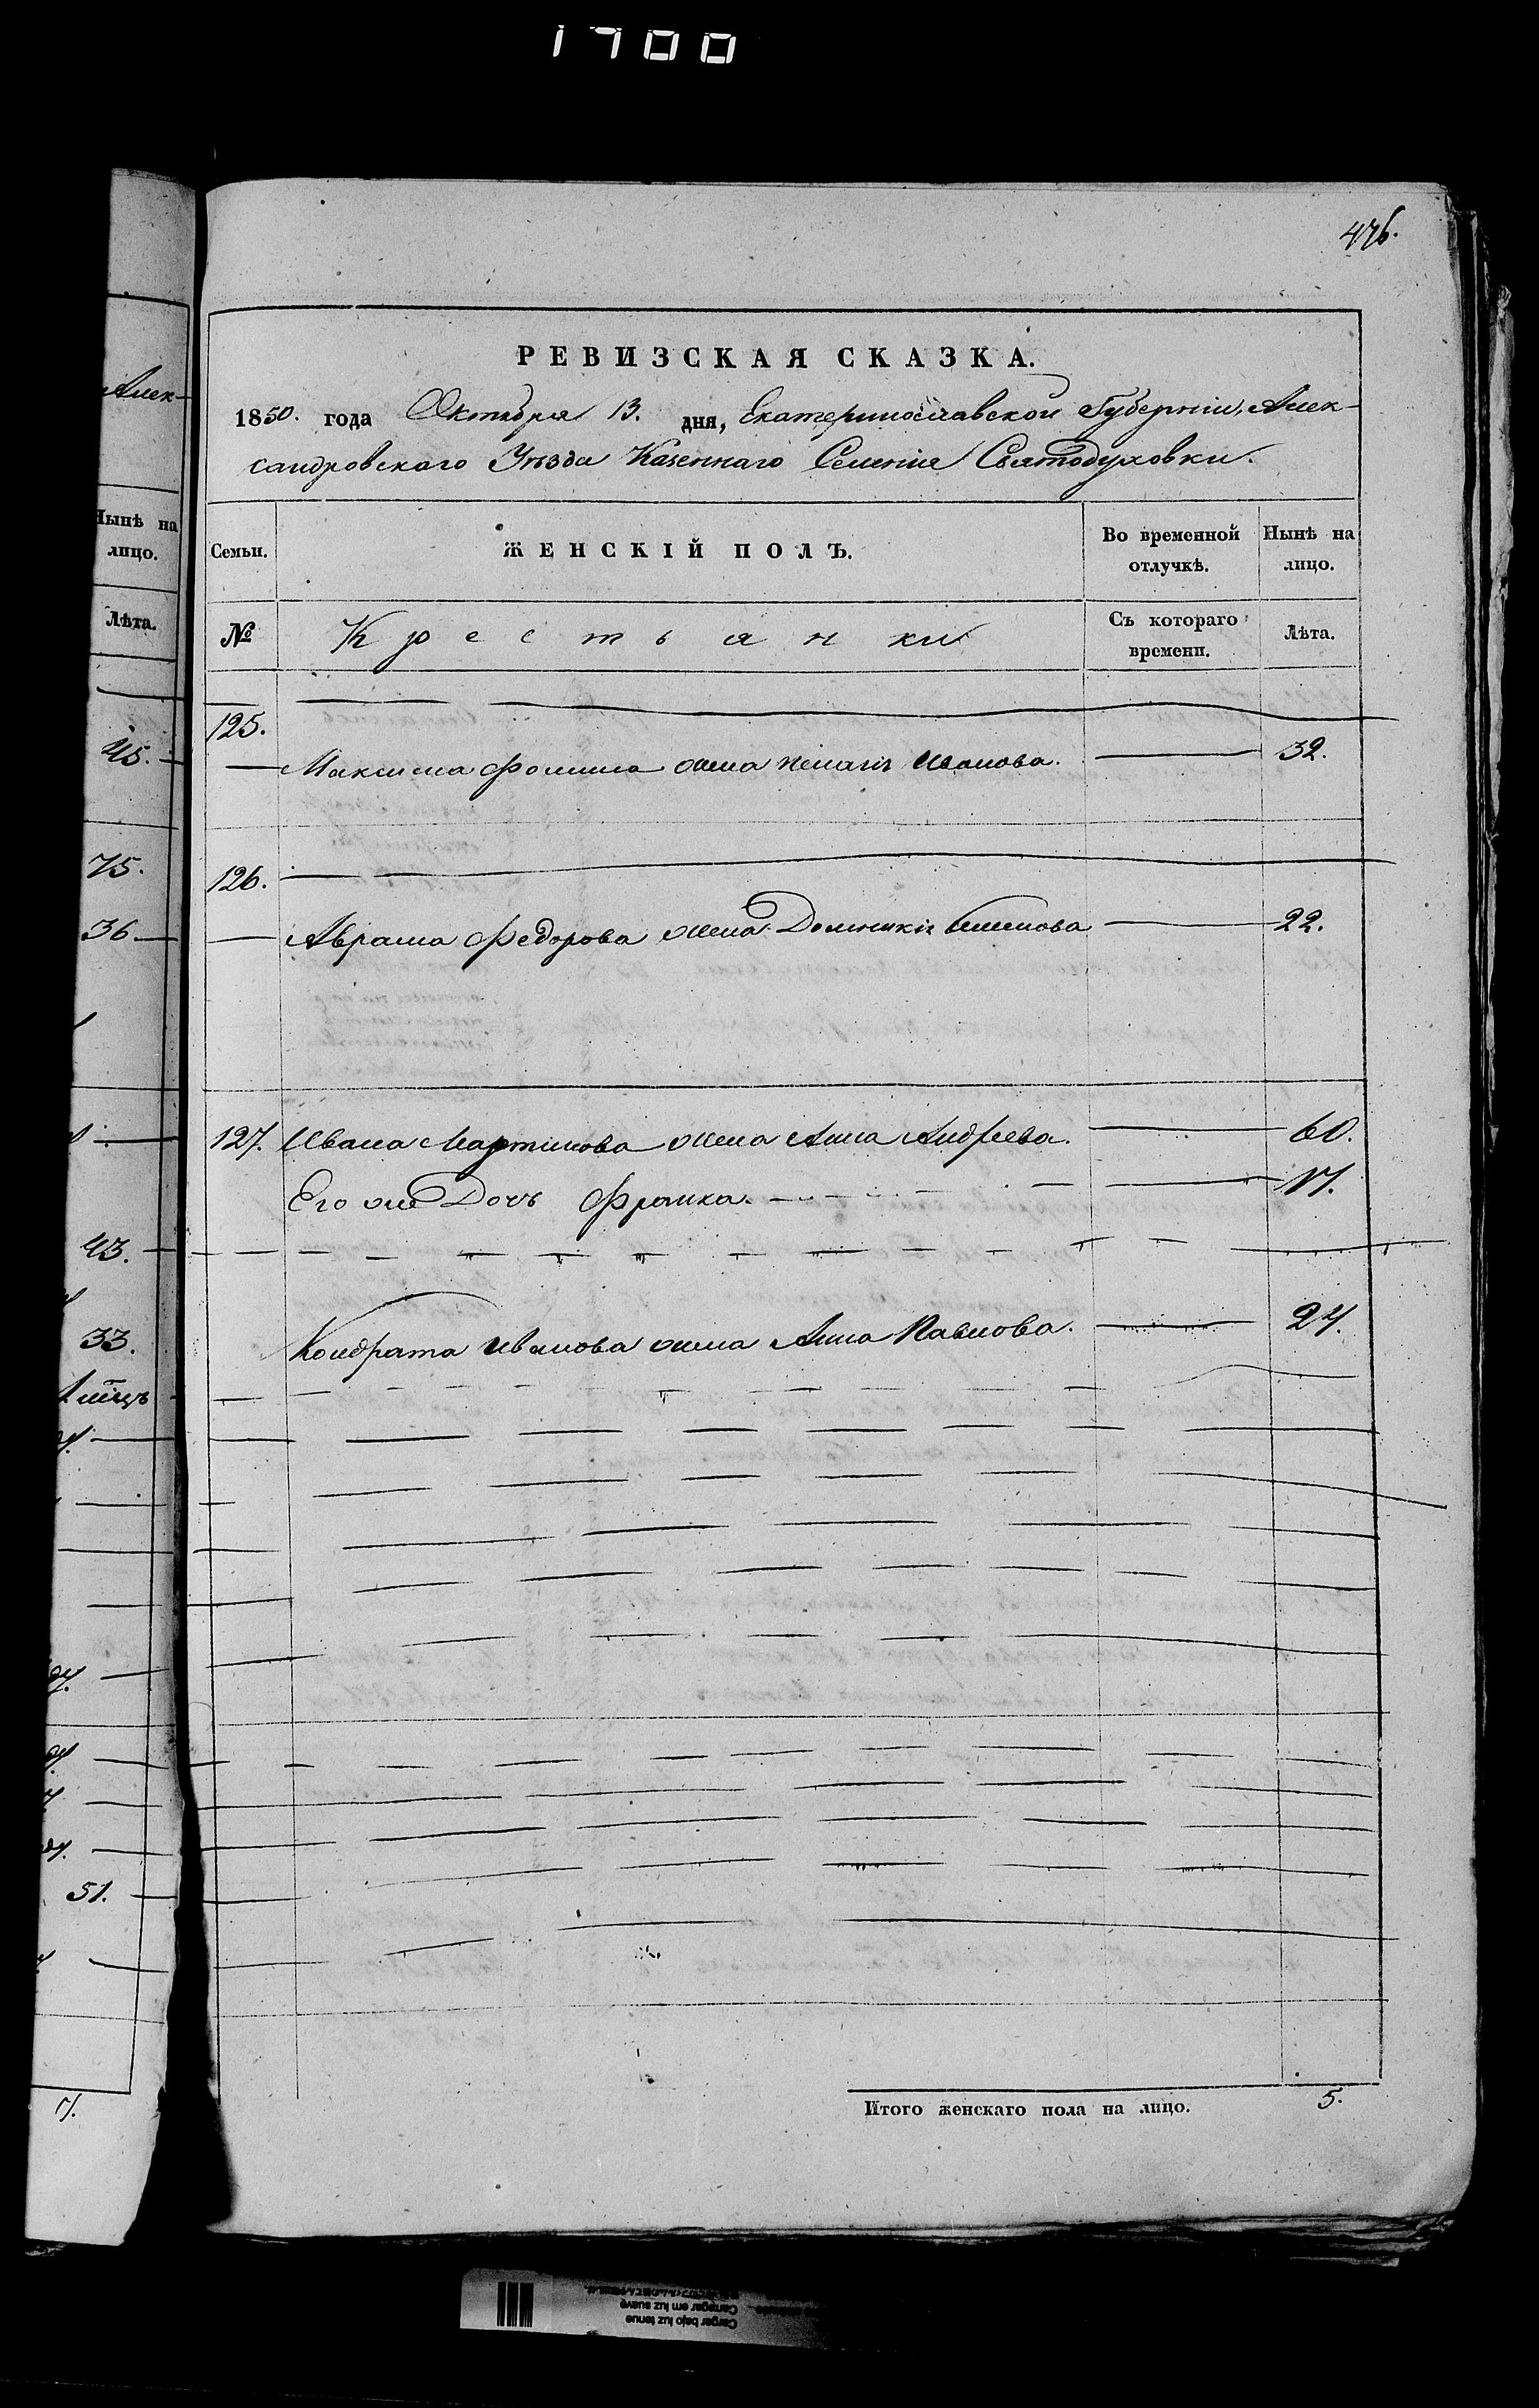 1700
476.
РЕВИЗСКАЯ СКАЗКА.
1850. года Октября 13. дня, Екатеринославской Губерніи, Алек-
сандровскаго Уѣзда Казеннаго Селенія Святодуховки.
Семьи. ЖЕНСКІЙ ПОЛЪ. Во временной отлучкѣ. Нынѣ на лицо.
№ Крестьянки Съ котораго времени. Лѣта.
125.
Максима Фомина жена Пелагія Иванова. 32.
126.
Аврама Федорова жена Домникія 22.
127. Ивана Мартинова жена Анна Андреева. 60.
Его же Дочь 17.
Кондрата Иванова жена Анна Павлова. 27.
Итого женскаго пола на лицо. 5.
Алек-
Нынѣ на
лицо.
Лѣта.
45.
75.
36
43.
33.
51.
Cargar bajo luz tenue
Carregar em luz suave